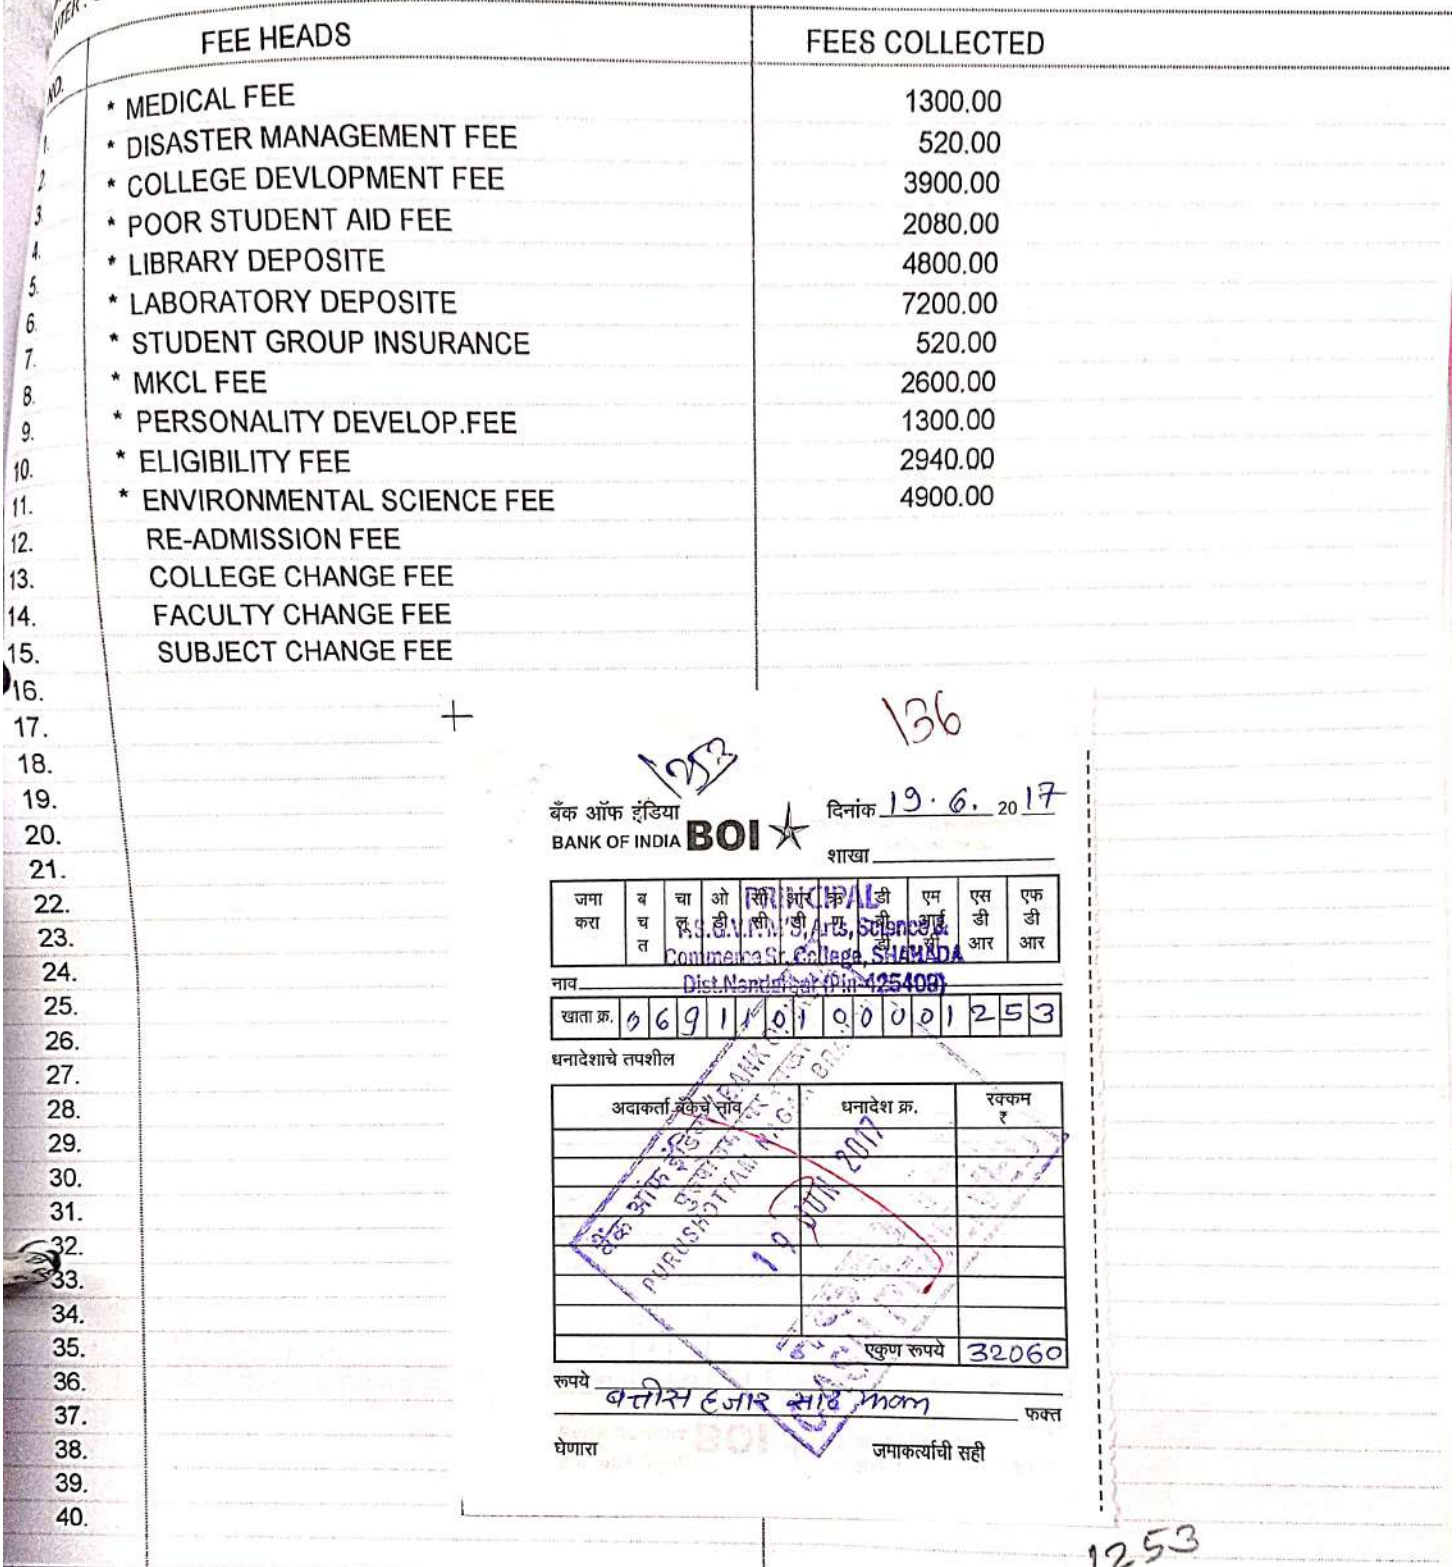 NO. FEE HEADS FEES COLLECTED
1. * MEDICAL FEE 1300.00
2. * DISASTER MANAGEMENT FEE 520.00
3. * COLLEGE DEVLOPMENT FEE 3900.00
4. * POOR STUDENT AID FEE 2080.00
5. * LIBRARY DEPOSITE 4800.00
6. * LABORATORY DEPOSITE 7200.00
7. * STUDENT GROUP INSURANCE 520.00
8. * MKCL FEE 2600.00
9. * PERSONALITY DEVELOP.FEE 1300.00
10. * ELIGIBILITY FEE 2940.00
11. * ENVIRONMENTAL SCIENCE FEE 4900.00
12. RE-ADMISSION FEE
13. COLLEGE CHANGE FEE
14. FACULTY CHANGE FEE
15. SUBJECT CHANGE FEE
16.
17.
18.
19.
20.
21.
22.
23.
24.
25.
26.
27.
28.
29.
30.
31.
32.
33.
34.
35.
36.
37.
38.
39.
40.
136
1253
बँक ऑफ इंडिया
BANK OF INDIA BOI
दिनांक 19.6. 2017
शाखा
जमा करा बचत चालू ओडी सीसी आरडी ऋण डीबीडी एमआईसी एसडीआर एफडीआर
PRINCIPAL
P.S.G.V.P.M'S, Arts, Science &
Commerce Sr. College, SHAHADA
Dist.Nandurbar (Pin-425409)
नाव
खाता क्र. 069110100001253
धनादेशाचे तपशील
अदाकर्ता बँकेचे नाव धनादेश क्र. रक्कम ₹
बैंक ऑफ इंडिया BANK OF INDIA
PURUSHOTTAM NAGAR BRANCH
19 JUN 2017
CASH RECEIVED
एकुण रूपये 32060
रूपये बत्तीस हजार साठ मात्र फक्त
घेणारा जमाकर्त्याची सही
1253